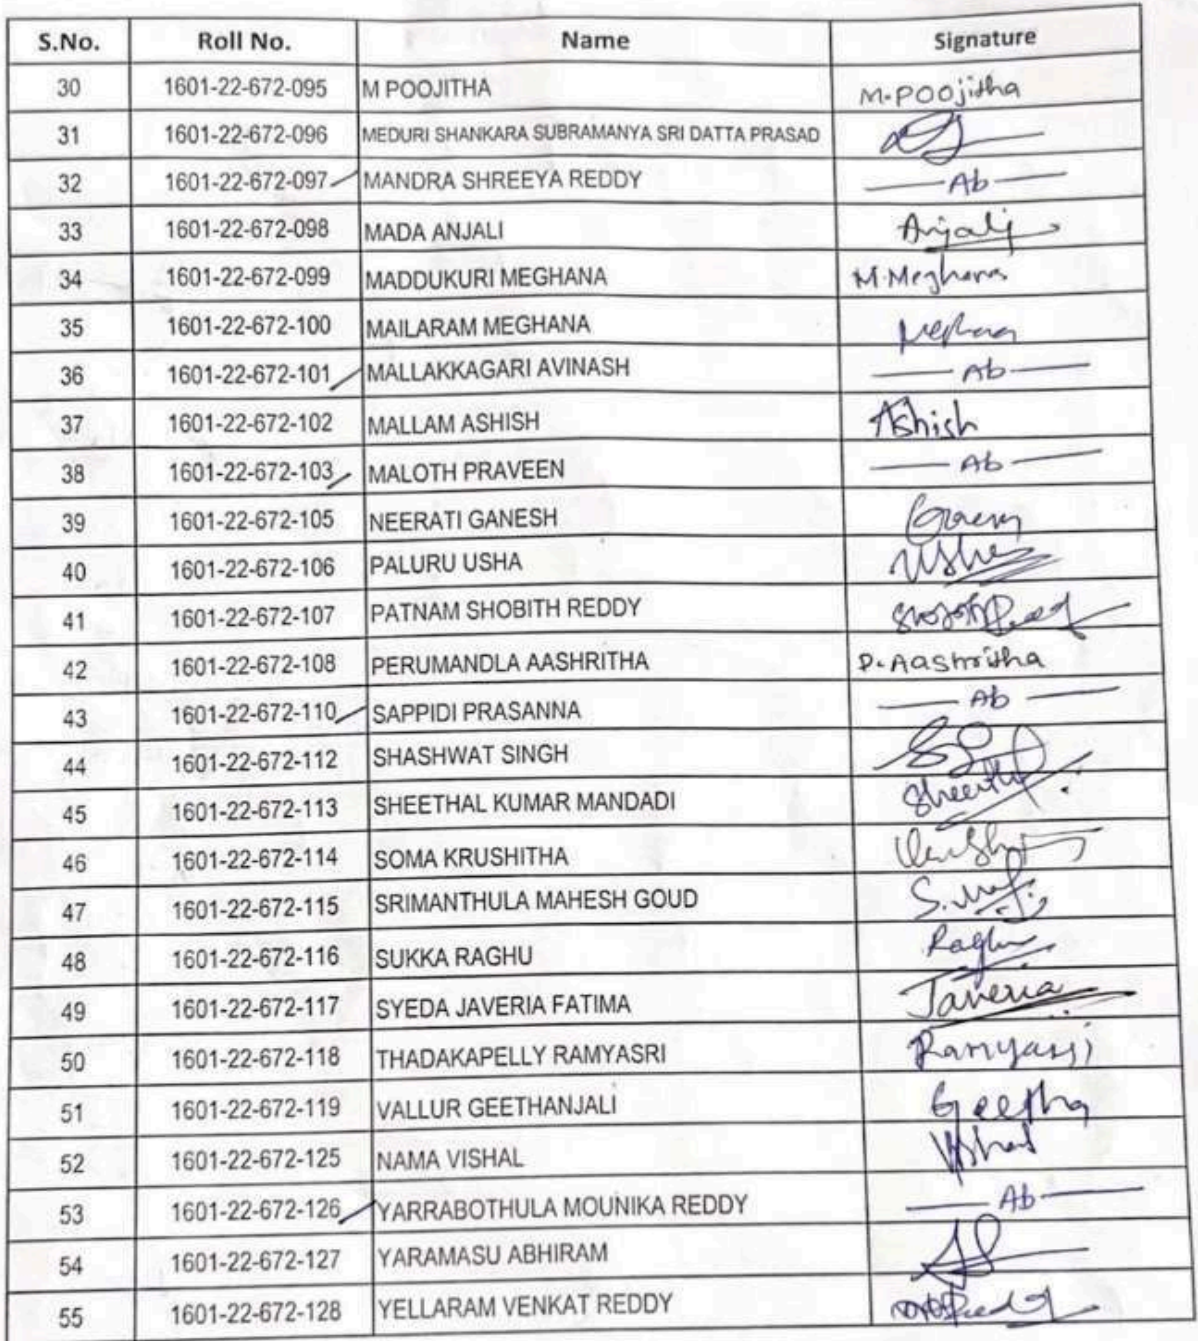 S.No. Roll No. Name Signature
30 1601-22-672-095 M POOJITHA M.POOjitha
31 1601-22-672-096 MEDURI SHANKARA SUBRAMANYA SRI DATTA PRASAD
32 1601-22-672-097 MANDRA SHREEYA REDDY Ab
33 1601-22-672-098 MADA ANJALI Anjali
34 1601-22-672-099 MADDUKURI MEGHANA M.Meghana
35 1601-22-672-100 MAILARAM MEGHANA Meghana
36 1601-22-672-101 MALLAKKAGARI AVINASH Ab
37 1601-22-672-102 MALLAM ASHISH Ashish
38 1601-22-672-103 MALOTH PRAVEEN Ab
39 1601-22-672-105 NEERATI GANESH
40 1601-22-672-106 PALURU USHA Usha
41 1601-22-672-107 PATNAM SHOBITH REDDY
42 1601-22-672-108 PERUMANDLA AASHRITHA P.Aashritha
43 1601-22-672-110 SAPPIDI PRASANNA Ab
44 1601-22-672-112 SHASHWAT SINGH
45 1601-22-672-113 SHEETHAL KUMAR MANDADI Sheethal
46 1601-22-672-114 SOMA KRUSHITHA
47 1601-22-672-115 SRIMANTHULA MAHESH GOUD
48 1601-22-672-116 SUKKA RAGHU Raghu
49 1601-22-672-117 SYEDA JAVERIA FATIMA Javeria
50 1601-22-672-118 THADAKAPELLY RAMYASRI Ramyasri
51 1601-22-672-119 VALLUR GEETHANJALI Geetha
52 1601-22-672-125 NAMA VISHAL Vishal
53 1601-22-672-126 YARRABOTHULA MOUNIKA REDDY Ab
54 1601-22-672-127 YARAMASU ABHIRAM
55 1601-22-672-128 YELLARAM VENKAT REDDY